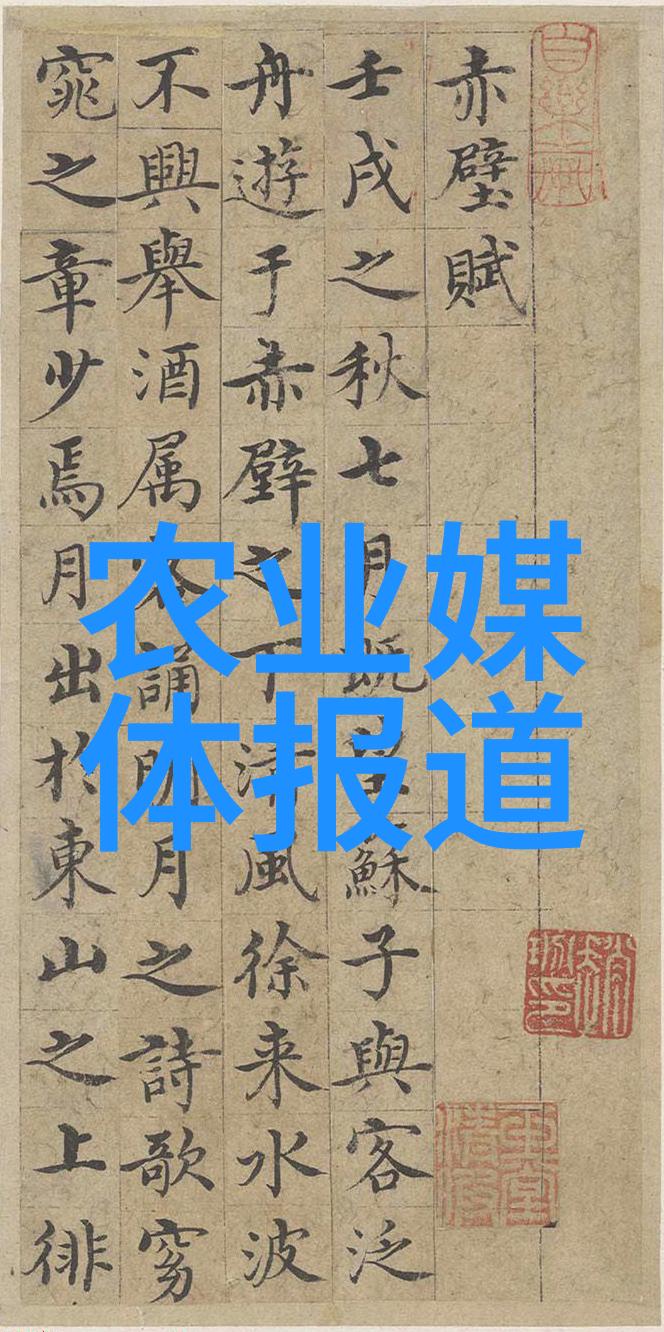 赤壁賦
壬戌之秋七月既望蘇子與客泛
舟遊于赤壁之下清風徐来水波
不興舉酒属客誦明月之詩歌窈
窕之章少焉月出於東山之上徘
农业媒
体报道